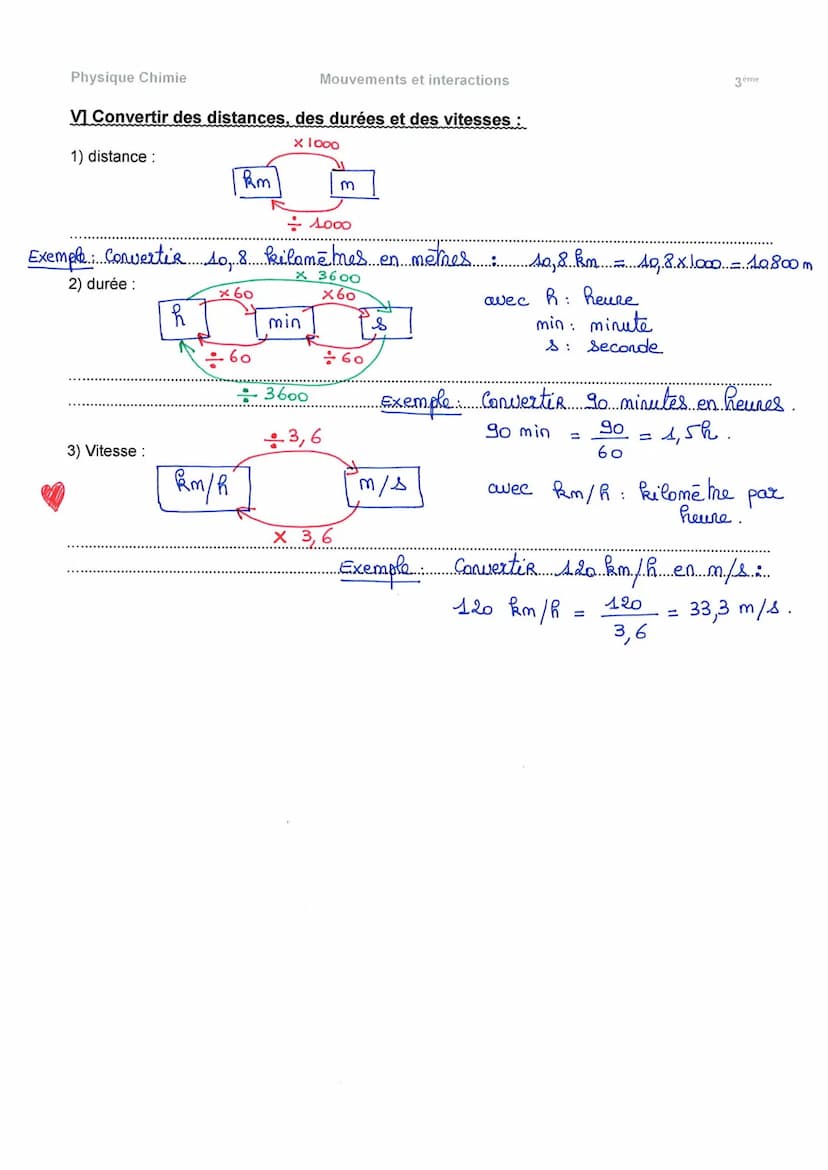 Physique Chimie Mouvements et interactions 3ème
V] Convertir des distances, des durées et des vitesses :
x 1000
1) distance :
km m
÷ 1000
Exemple : Convertir 10,8 kilomètres en mètres : 10,8 km = 10,8 x 1000 = 10800 m
2) durée :
x 3600
x60 x60
h min s
÷ 60 ÷ 60
÷ 3600
avec h : heure
min : minute
s : seconde
Exemple : Convertir 90 minutes en heures.
90 min = 90/60 = 1,5h.
3) Vitesse :
÷ 3,6
km/h m/s
x 3,6
avec km/h : kilomètre par
heure.
Exemple : Convertir 120 km/h en m/s :
120 km/h = 120/3,6 = 33,3 m/s.